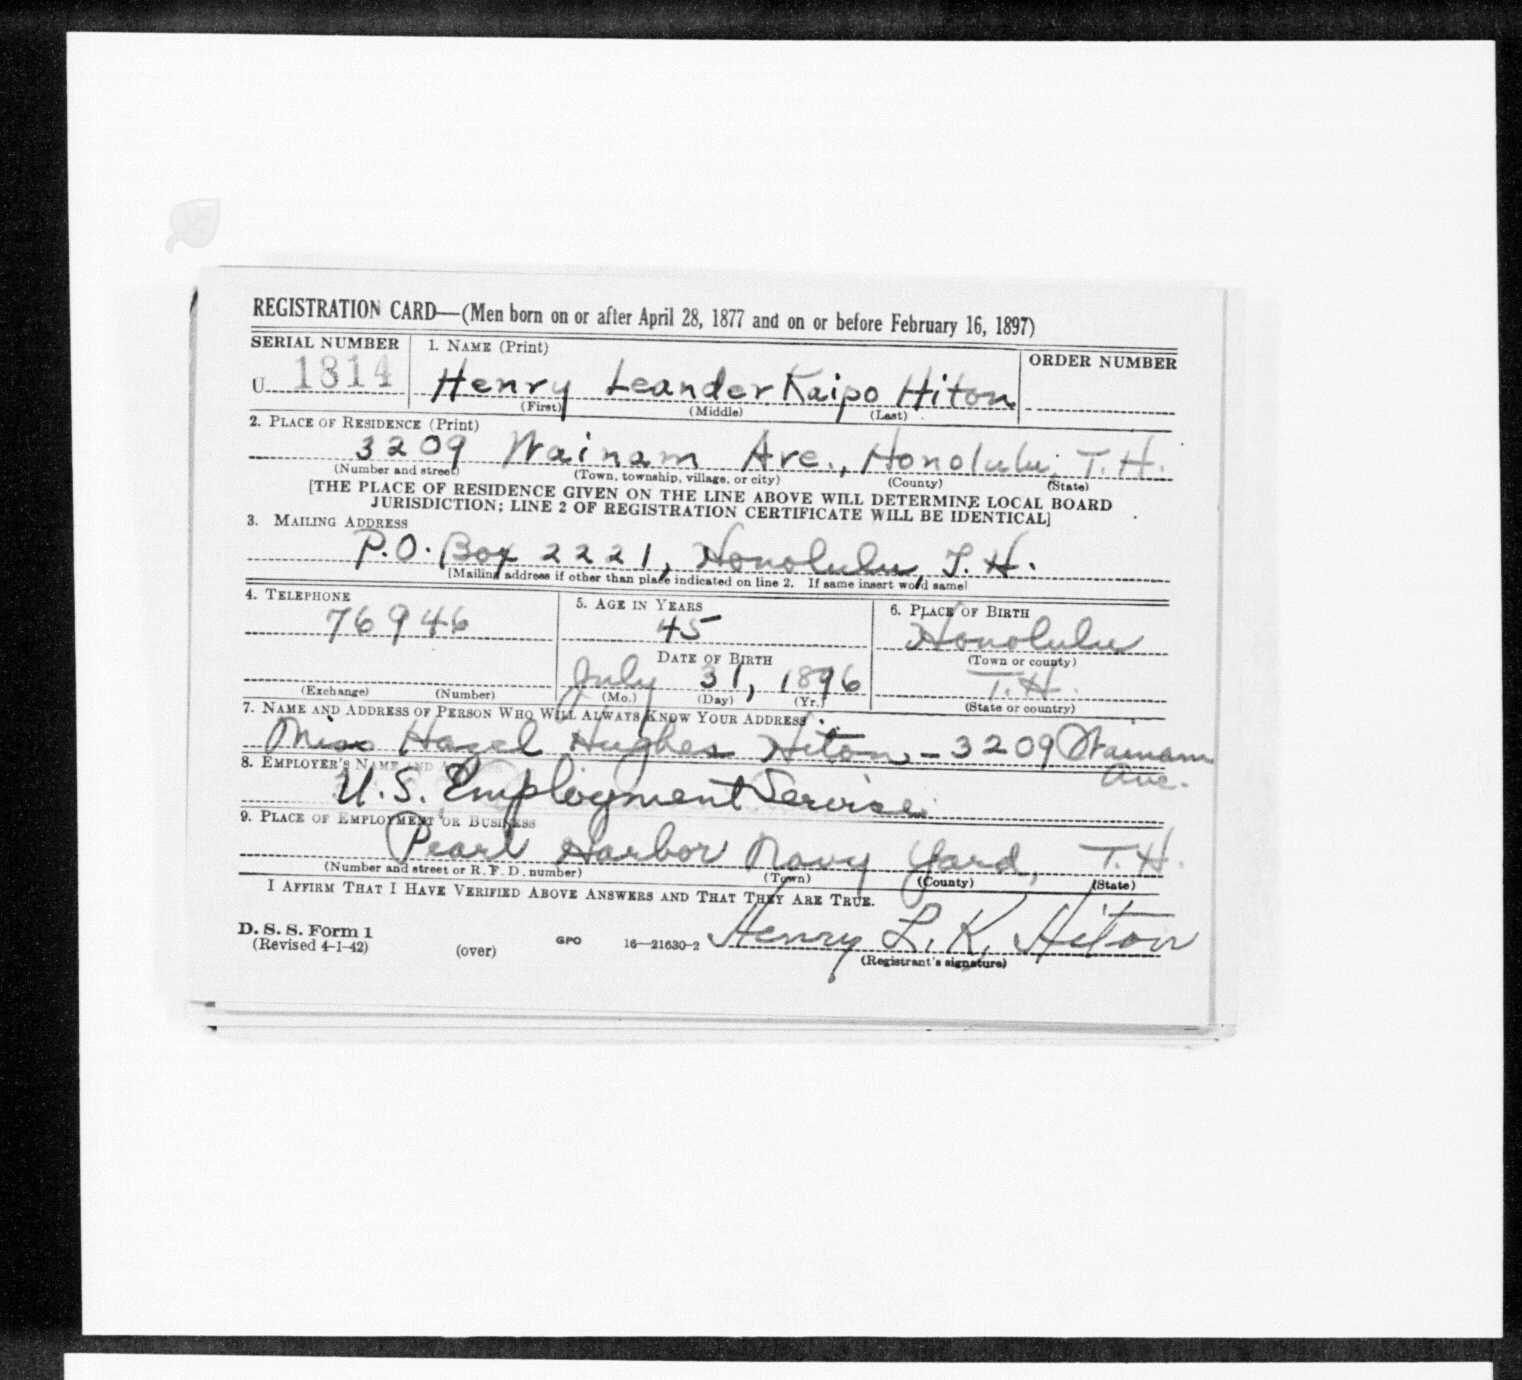 REGISTRATION CARD—(Men born on or after April 28, 1877 and on or before February 16, 1897)
SERIAL NUMBER
1. NAME (Print)
ORDER NUMBER
U 1814
Henry Leander Kaipo Hiton
(First) (Middle) (Last)
2. PLACE OF RESIDENCE (Print)
3209 Wainam Ave., Honolulu, T. H.
(Number and street) (Town, township, village, or city) (County) (State)
[THE PLACE OF RESIDENCE GIVEN ON THE LINE ABOVE WILL DETERMINE LOCAL BOARD
JURISDICTION; LINE 2 OF REGISTRATION CERTIFICATE WILL BE IDENTICAL]
3. MAILING ADDRESS
P.O. Box 2221, Honolulu, T. H.
[Mailing address if other than place indicated on line 2. If same insert word same]
4. TELEPHONE
76946
(Exchange) (Number)
5. AGE IN YEARS
45
DATE OF BIRTH
July 31, 1896
(Mo.) (Day) (Yr.)
6. PLACE OF BIRTH
Honolulu
(Town or county)
T.H.
(State or country)
7. NAME AND ADDRESS OF PERSON WHO WILL ALWAYS KNOW YOUR ADDRESS
Miss Hazel Hughes Hiton - 3209 Wainam
Ave.
8. EMPLOYER'S NAME AND ADDRESS
U.S. Employment Service
9. PLACE OF EMPLOYMENT OR BUSINESS
Pearl Harbor Navy Yard, T. H.
(Number and street or R. F. D. number) (Town) (County) (State)
I AFFIRM THAT I HAVE VERIFIED ABOVE ANSWERS AND THAT THEY ARE TRUE.
D. S. S. Form 1
(Revised 4-1-42) (over) GPO 16—21630-2 Henry L. K. Hiton
(Registrant's signature)